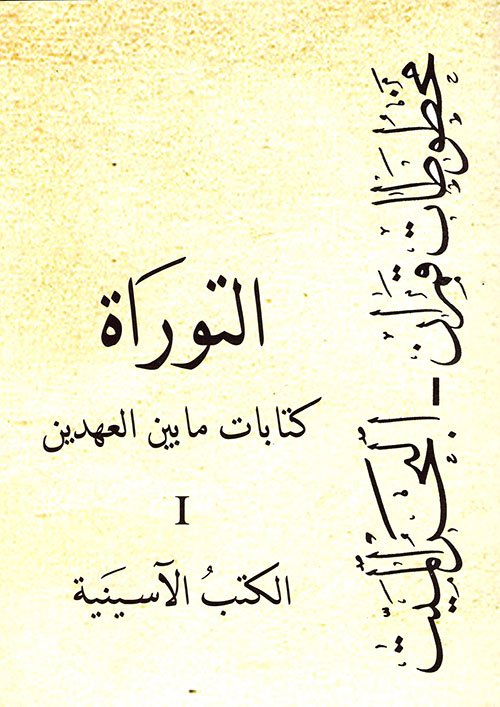 مخطوطات قمران - البحر الميت
التوراة
كتابات ما بين العهدين
I
الكتبُ الآسينية